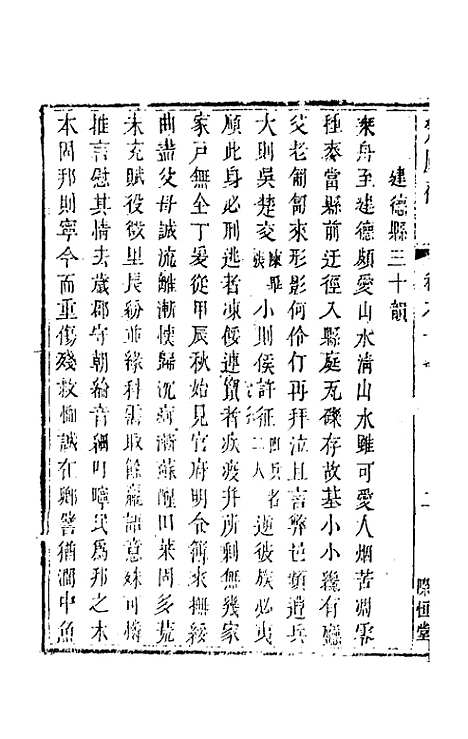 建德縣三十韻
來舟至建德頗愛山水清山水雖可愛人烟苦凋零
種麥當縣前迂徑入縣庭瓦礫存故基小小纔有廳
父老匍匐來形影何伶仃再拜泣且言弊邑頻遭兵
大則吳楚交小則侯許征二人逆彼族必夷
順此身必刑逃者凍餒連質者疾疫并所剩無幾家
家戶無全丁爰從甲辰秋始見官府明令簿來撫綏
曲盡父母誠流離漸懷歸沉痾漸蘇醒田萊固多荒
未充賦役徵里長紛並緣科需取餘嬴諦意殊可憐
推言慰其情去歲郡守朝綸音親叮嚀民為邦之本
本固邦則寧今而重傷殘救恤誠在卿譬猶澗中魚